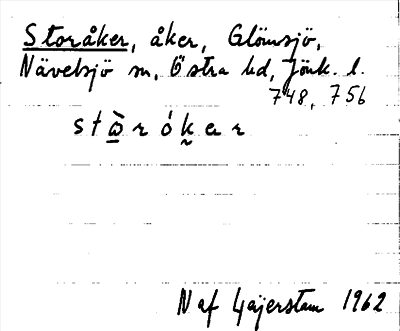 Storåker, åker, Glömsjö,
Nävelsjö sn, Östra hd, Jönk. l.
748, 756
stò̲rók̰er
N af Gajerstam 1962